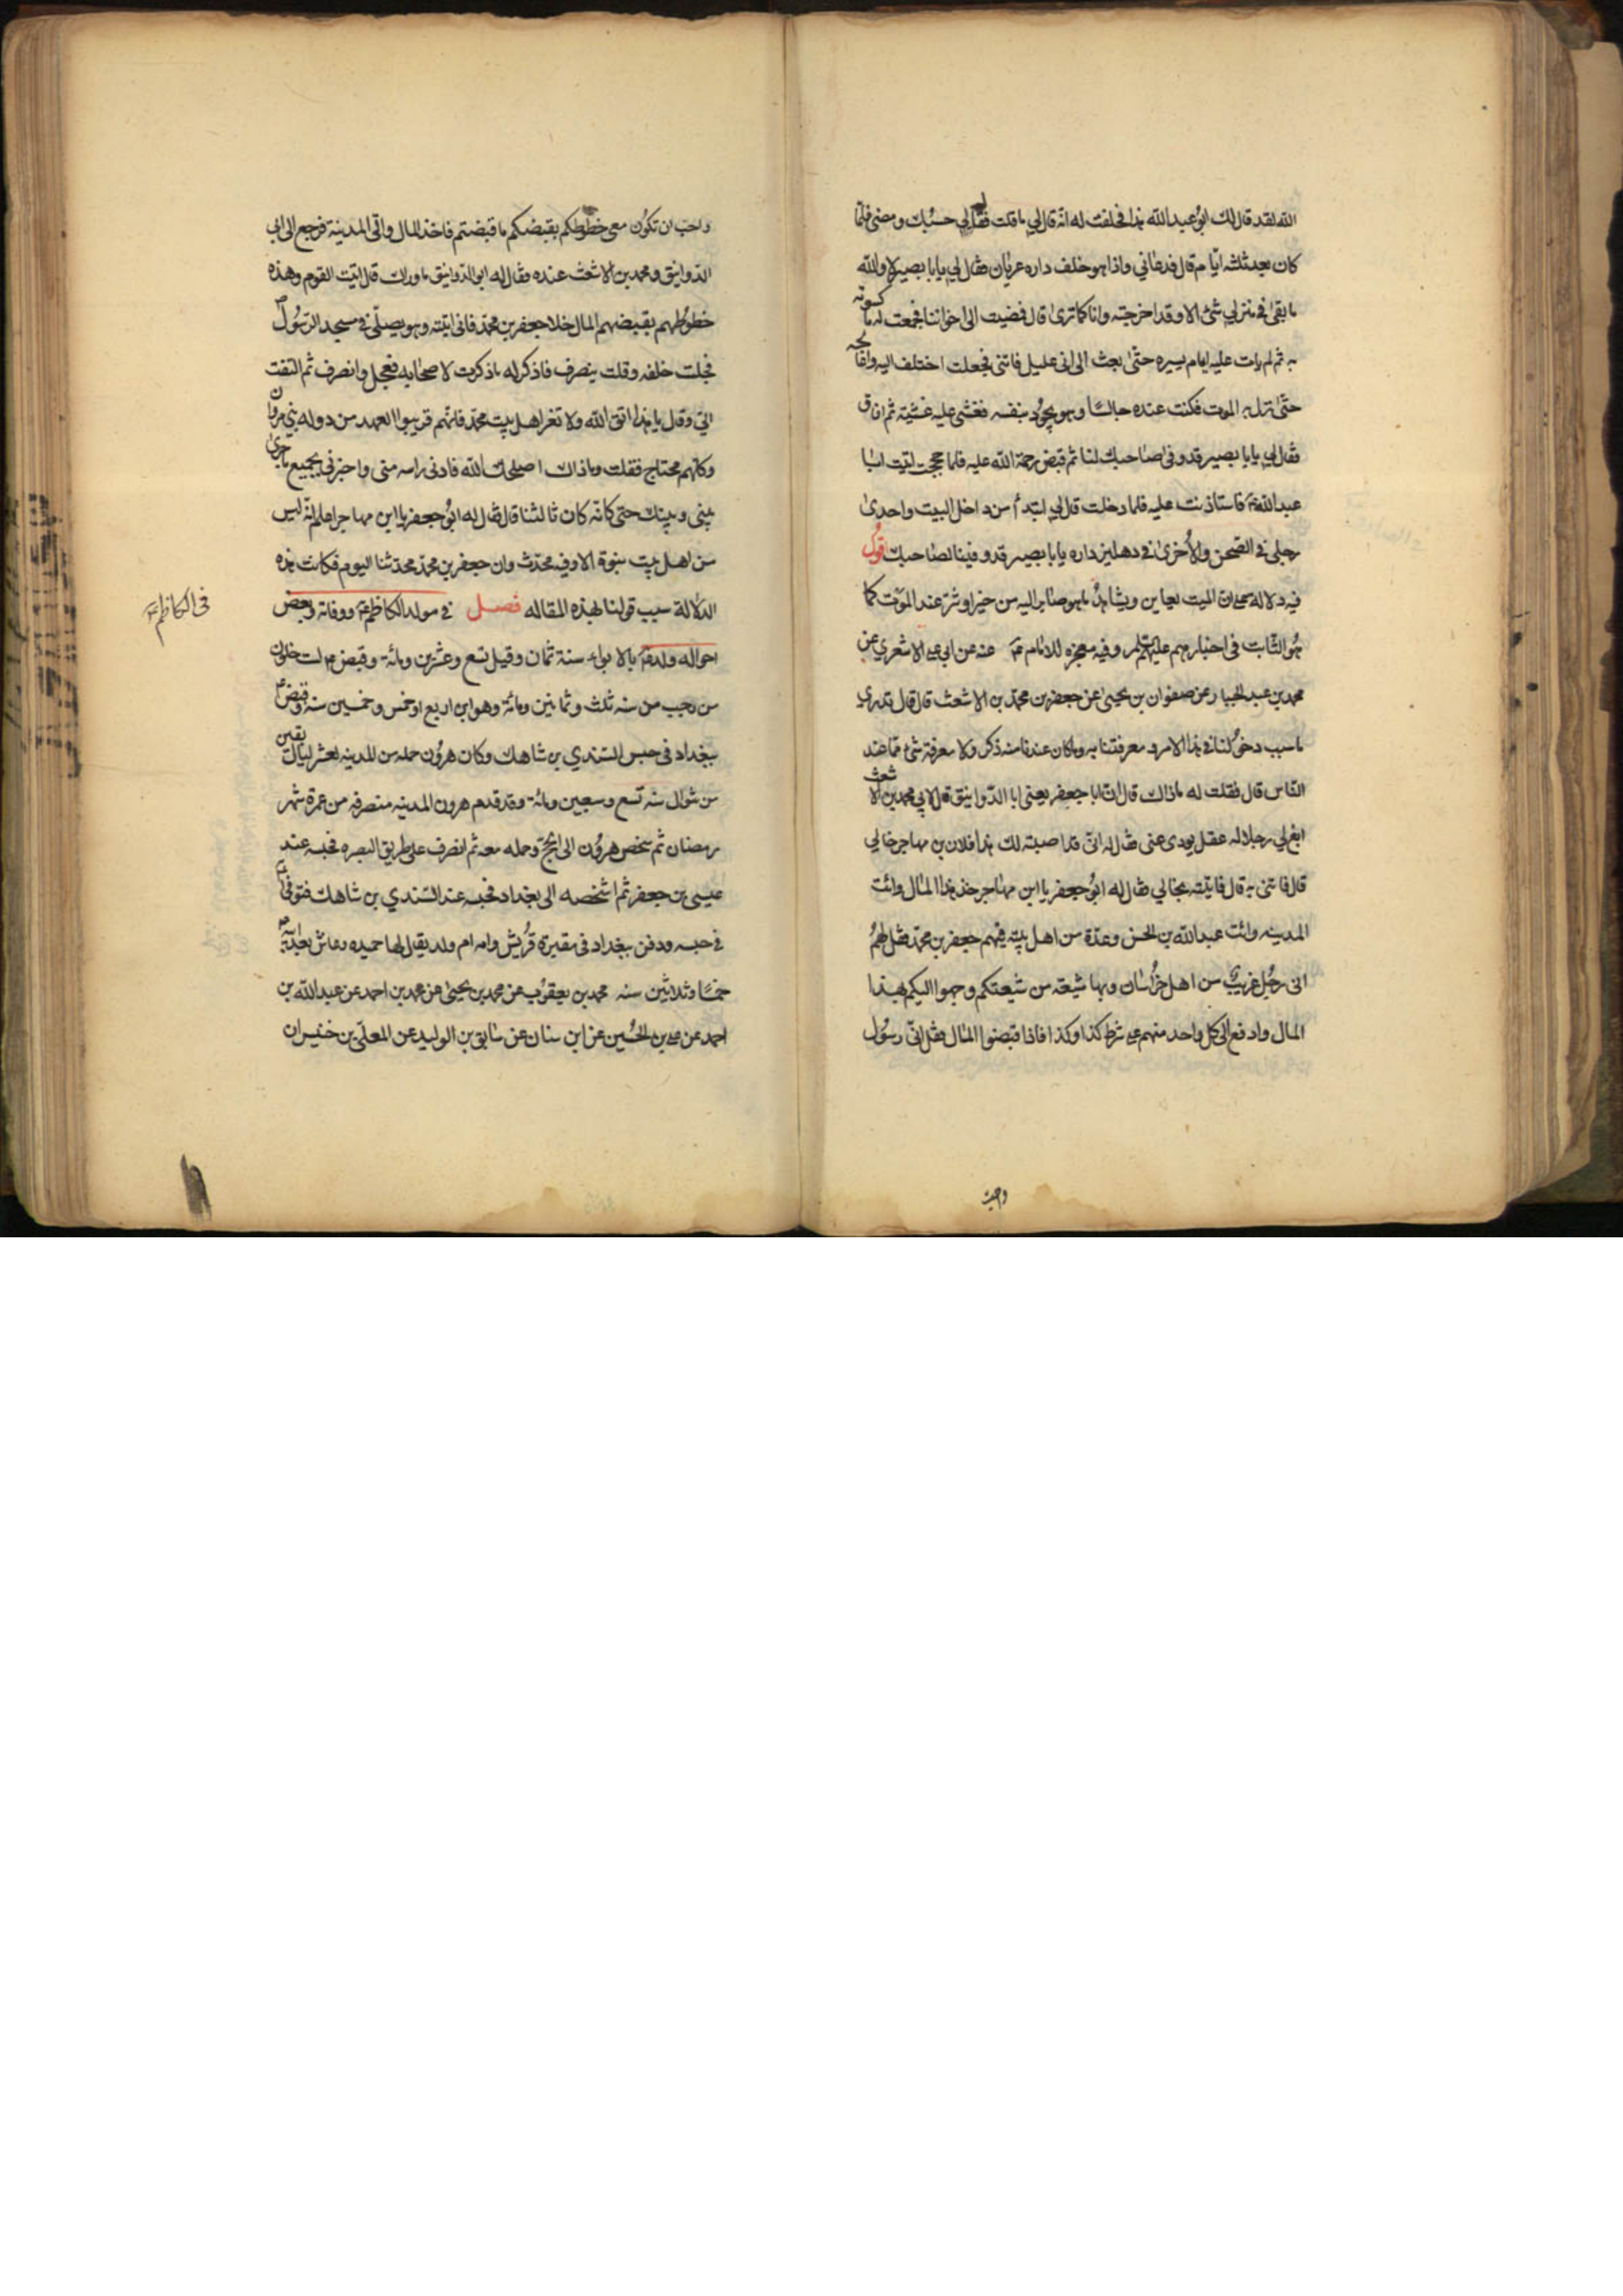 الله لقد قال لك ابو عبد الله هذا فحلفت له انه قال لي ما قلت فقال لي حسبك ومضى فلما
كان بعد ثلثه ايام قال فدعاني واذا هو خلف داره عريان فقال لي يابا بصير لا والله
ما بقى في منزلي شئ الا وقد اخرجته وانا كما ترى قال فمضيت الى اخواننا فجمعت له ما كسوته
به ثم لم يات عليه ايام يسيره حتى بعث الى اني عليل فاتنى فجعلت اختلف اليه واعالجه
حتى نزل به الموت فكنت عنده جالسا وهو يجود بنفسه فغشى عليه غشيته ثم افاق
فقال لي يابا بصير قد وفى صاحبك لنا ثم قبض رحمة الله عليه فلما حججت اتيت ابا
عبد الله ع فاستاذنت عليه فلما دخلت قال لي ابتدأ من داخل البيت واحدى
رجلي في الصحن والاخرى في دهليز داره يابا بصير قد وفينا لصاحبك قول
فيه دلاله على ان الميت يعاين ويشاهد ما هو صائر اليه من خير او شر عند الموت كما
هو الثابت فى اخبارهم عليهم السلم وفيه معجزه للامام ع عنه عن ابى على الاشعري عن
محمد بن عبد الجبار عن صفوان بن يحيى عن جعفر بن محمد بن الاشعث قال قال تدرى
ما سبب دخولنا في هذا الامر ومعرفتنا به وما كان عندنا منه ذكر ولا معرفة شئ مما عند
الناس قال فقلت له ما ذاك قال ان ابا جعفر يعنى ابا الدوانيق قال لابي محمد بن الاشعث
ابغ لي رجلا له عقل يودى عنى فقال له انى قد اصبته لك هذا فلان بن مهاجر خالي
قال فاتنى به قال فاتيته بخالي فقال له ابو جعفر يا ابن مهاجر خذ هذا المال وائت
المدينه وائت عبد الله بن الحسن وعدة من اهل بيته فيهم جعفر بن محمد فقل لهم
انى رجل غريب من اهل خراسان وبها شيعة من شيعتكم وجهوا اليكم بهذا
المال وادفع الى كل واحد منهم على شرط كذا وكذا فاذا قبضوا المال فقل انى رسول
واحب
واحب ان تكون معى خطوطكم بقبضكم ما قبضتم فاخذ المال واتى المدينة فرجع الى ابى
الدوانيق ومحمد بن الاشعث عنده فقال له ابو الدوانيق ما وراك قال اتيت القوم وهذه
خطوطهم بقبضهم المال خلا جعفر بن محمد فانى اتيته وهو يصلى في مسجد الرسول ص
فجلست خلفه وقلت ينصرف فاذكر له ما ذكرت لاصحابه فعجل وانصرف ثم التفت
الى وقال يا هذا اتق الله ولا تغر اهل بيت محمد فانهم قريبوا العهد من دوله بني مروان
وكلهم محتاج فقلت وما ذاك اصلحك الله فادنى راسه منى واخبرنى بجميع ما جرى
بينى وبينك حتى كانه كان ثالثنا قال فقال له ابو جعفر يا ابن مهاجر اعلم انه ليس
من اهل بيت نبوة الا وفيه محدث وان جعفر بن محمد محدثنا اليوم فكانت هذه
الدلالة سبب قولنا بهذه المقاله فصل في مولد الكاظم ع ووفاته وبعض
احواله ولد ع بالابواء سنة ثمان وقيل تسع وعشرين ومائة وقبض ع لست خلون
من رجب من سنه ثلث وثمانين ومائة وهو ابن اربع او خمس وخمسين سنه وقبض ع
ببغداد فى حبس السندي بن شاهك وكان هرون حمله من المدينه لعشر ليال بقين
من شوال سنه تسع وسبعين ومائة وقد قدم هرون المدينه منصرفه من عمرة شهر
رمضان ثم شخص هرون الى الحج وحمله معه ثم انصرف على طريق البصره فحبسه عند
عيسى بن جعفر ثم اشخصه الى بغداد فحبسه عند السندي بن شاهك فتوفى ع
في حبسه ودفن ببغداد فى مقبرة قريش وامه ام ولد يقال لها حميده وعاش بعد ابيه ع
خمسا وثلاثين سنه محمد بن يعقوب عن محمد بن يحيى عن محمد بن احمد عن عبد الله بن
احمد عن على بن الحسين عن ابن سنان عن سابق بن الوليد عن المعلى بن خنيس ان
فى الكاظم ع